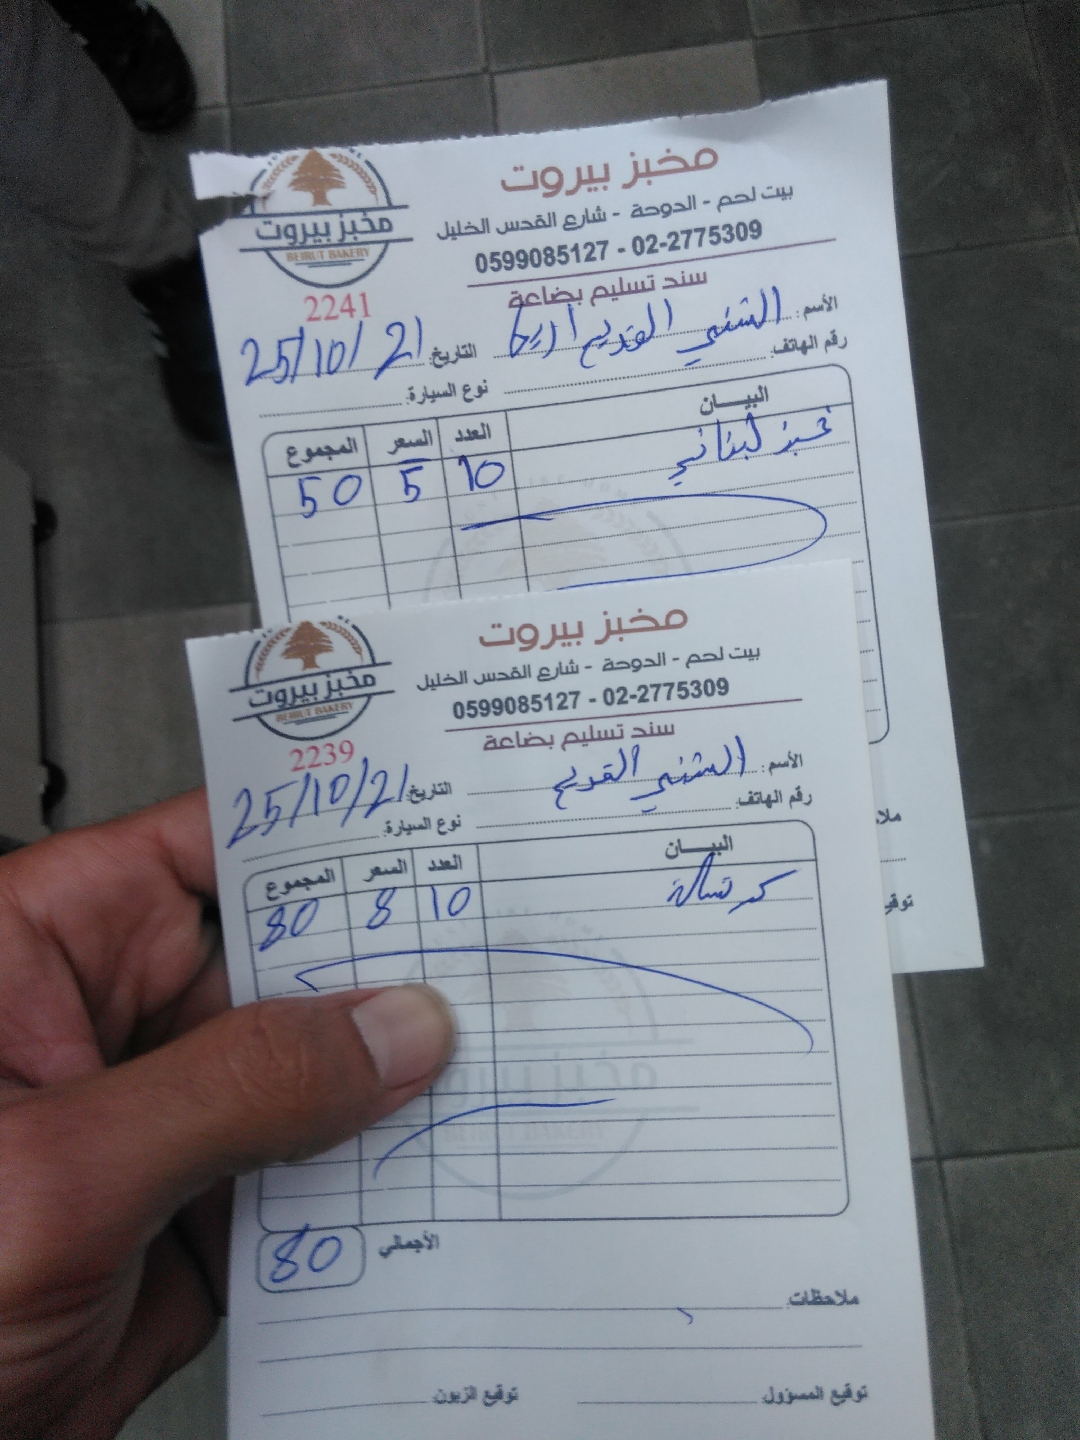 مخبز بيروت
BEIRUT BAKERY
مخبز بيروت
بيت لحم - الدوحة - شارع القدس الخليل
0599085127 - 02-2775309
سند تسليم بضاعة
2241
الأسم: الشني القديم اريحا
التاريخ: 25/10/21
رقم الهاتف:
نوع السيارة:
البيـــان العدد السعر المجموع
خبز لبناني 10 5 50
ملا
توقيع
مخبز بيروت
BEIRUT BAKERY
مخبز بيروت
بيت لحم - الدوحة - شارع القدس الخليل
0599085127 - 02-2775309
سند تسليم بضاعة
2239
الأسم: الشني القديم
التاريخ: 25/10/21
رقم الهاتف:
نوع السيارة:
البيـــان العدد السعر المجموع
10 8 80
مخبز بيروت
BEIRUT BAKERY
الأجمالي 80
ملاحظات:
توقيع المسؤول: توقيع الزبون: